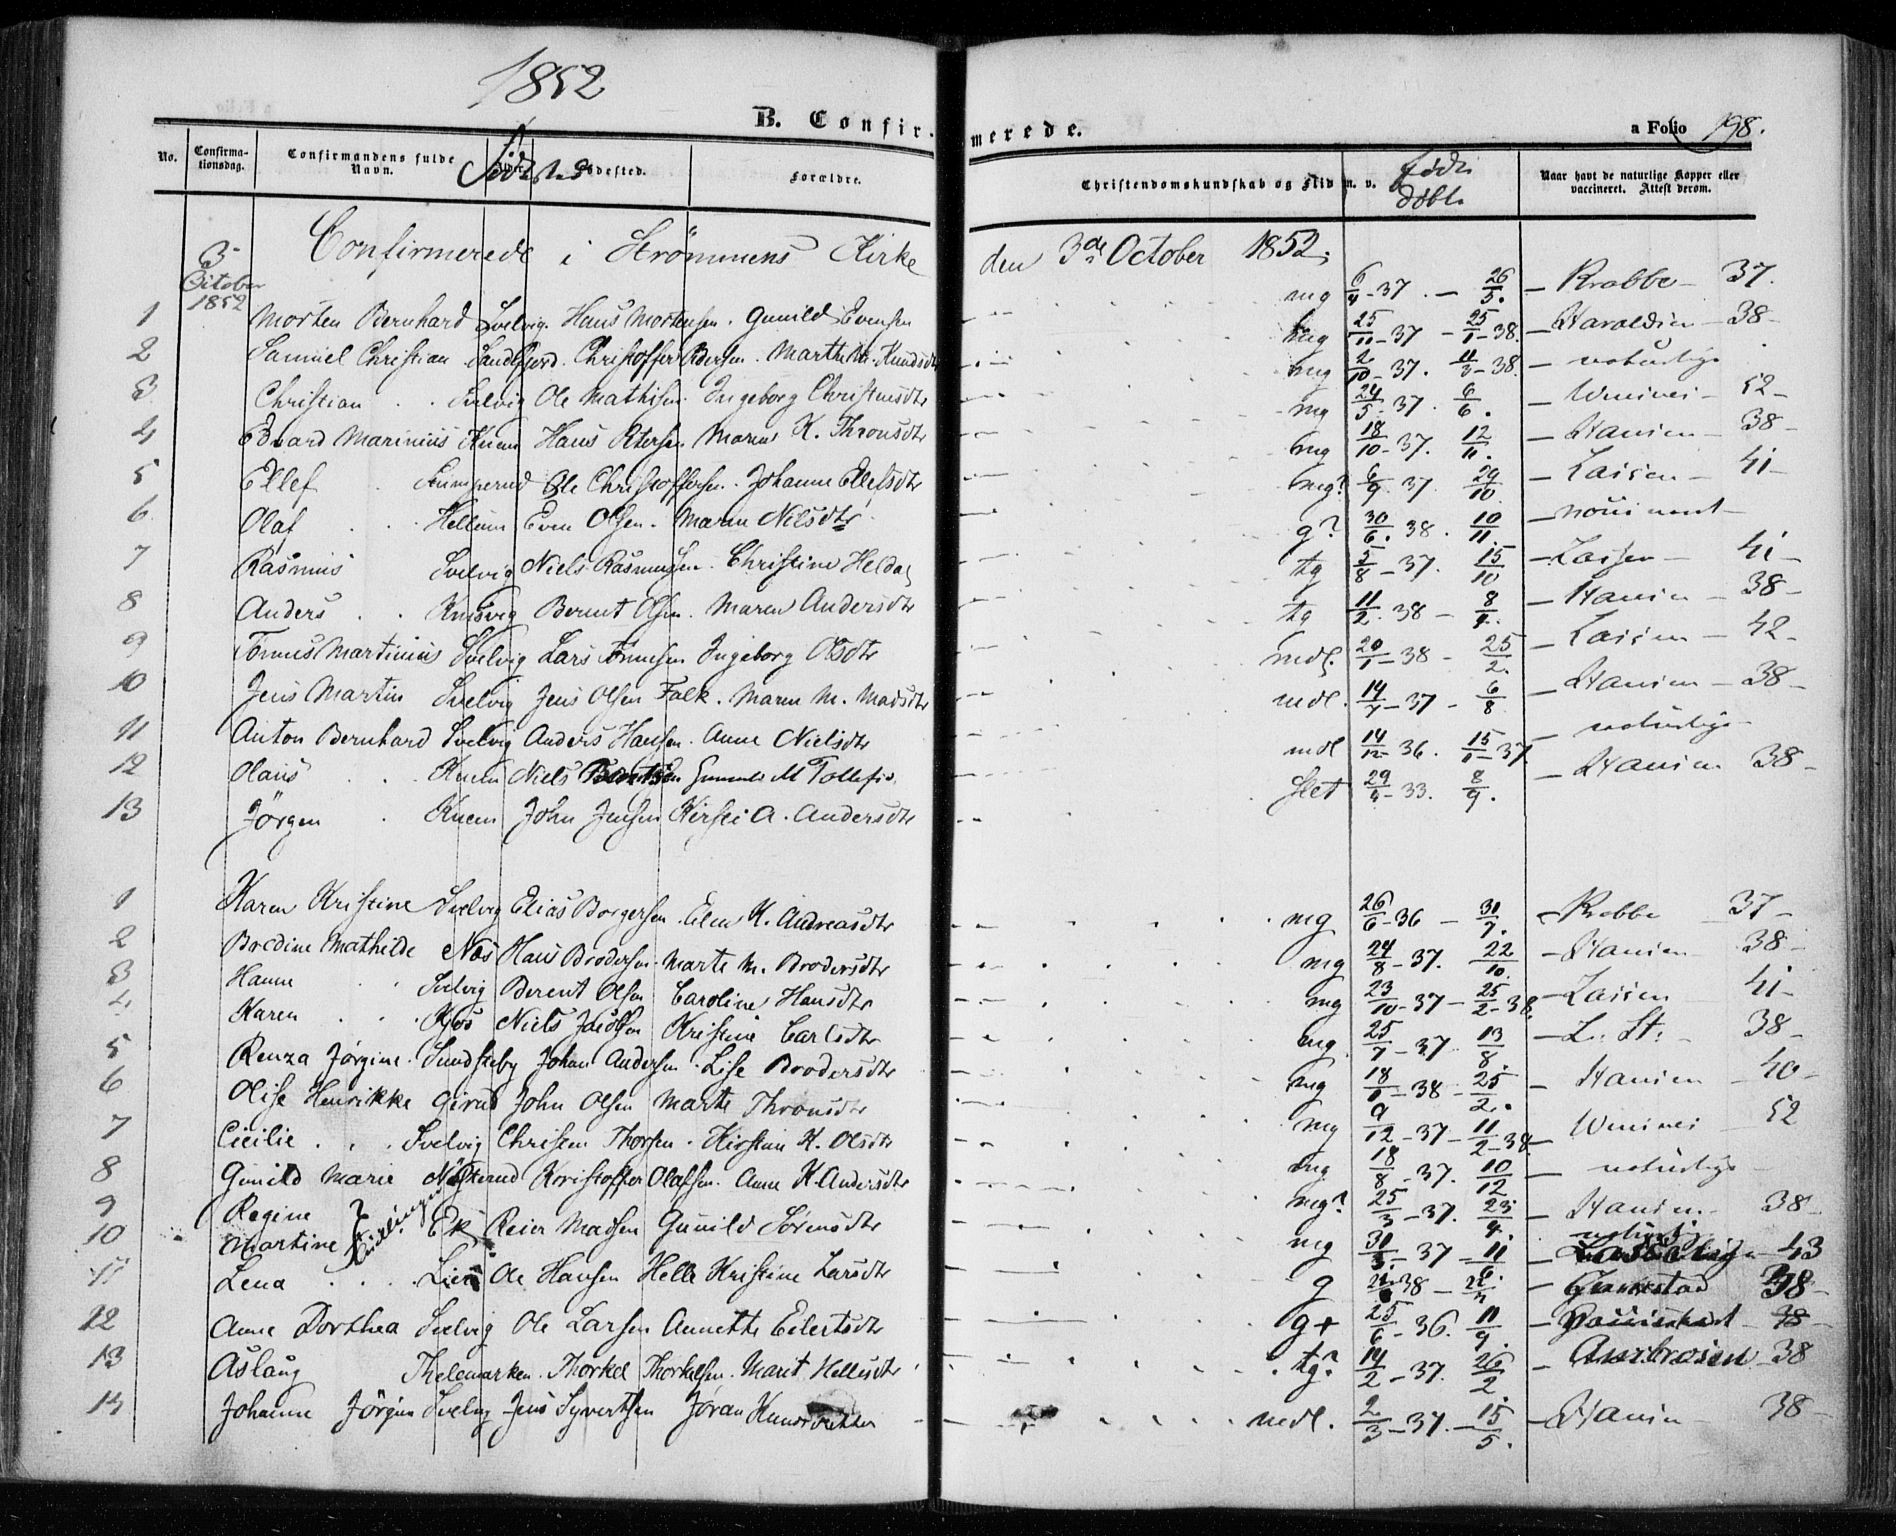 1852
B. Confir-merede.
a Folio 198.
No. Confirma-tionsdag. Confirmandens fulde Navn. Fødested. Forældre. Christendomskundskab og Flid m. v. født døbt Naar havt de naturlige Kopper eller vaccineret. Attest derom.
3 October 1852
Confirmerede i Strømmens Kirke den 3de October 1852.
1 Morten Bernhard Svelvig. Hans Mortensen. Gunild Evensen mg 6/4-37. - 26/5. - Krabbe - 37.
2 Samuel Christian Sandefjord. Christoffer Pedersen. Marthe M. Knudsdtr mg 25/11-37 - 25/1-38. - Haraldsen - 38-
3 Christian Svelvig Ole Mathisen. Ingeborg Christensdtr mg 2/10-37. 11/3-38. - naturlige
4 Edvard Marinius Knem Hans Petersen. Maren K. Thronsdtr mg 24/5-37. 6/6. - 52-
5 Ellef Ole Christoffersen. Johanne Ellefsdtr mg 18/10-37. 12/11. - Hansen - 38-
6 Olaf Hellum Even Olsen. Maren Nilsdtr mg? 6/9-37. 29/10. - Lassen - 41-
7 Rasmus Svelvig Niels Rasmussen. Christine Heldal g? 30/6.38. 10/11. -
8 Anders Bernt Olsen. Maren Andersdtr tg 5/8-37. 15/10 - Lassen - 41-
9 Tønnes Martinius Svelvig Lars Tønnesen Ingeborg Olsdtr tg 11/2.38 - 8/4. - Hansen - 38-
10 Jens Martin Svelvig Jens Olsen Falk. Maren M. Madsdtr mdl. 20/1-38 - 25/2. - Lassen - 42-
11 Anton Bernhard Svelvig Anders Hansen. Anne Nielsdtr mdl. 14/7-37 - 6/8 - Hansen - 38-
12 Olaus Knem Niels M Tollefsd. mdl 14/12-36. 15/1-37 - naturlige -
13 Jörgen Knem John Jensen Kirsti A. Andersdtr slet 29/4-33. 8/9. - Hansen 38-
1 Karen Kristine Svelvig Elias Borgersen. Elen K. Andreasdtr mg 26/6-36 - 31/7. - Krabbe 37-
2 Bredine Mathilde Næs Hans Brodersen. Marte M. Brodersdtr mg 24/8-37. 22/10. - Hansen 38-
3 Hanne Svelvig Berent Olsen Caroline Hansdtr mg 23/10-37 - 25/2-38. - Lassen 41-
4 Karen Niels Jacobsen Kristine Carlsdtr mg 25/7-37. 13/8. - L. St. - 38-
5 Renza Jörgine. Sundsteby Johan Andersen. Lise Brodersdtr mg 18/1-38 - 25/2. - Hansen - 40-
6 Olise Henrikke Girud John Olsen Marte Thronsdtr mg 9/12-37 - 11/2-38 - 52
7 Cicilie Svelvig Christen Thorsen. Kirstine K. Olsdtr mg 18/8-37. 10/12 - naturlige
8 Gunild Marie Kristoffer Olafsen. Anne K. Andersdtr mg? 25/3-37. 23/4. - Hansen 38-
9 Regine
10 Martine Tvillinger Ek Reier Madsen Gunild Sörensdtr mg 31/3-37 - 11/6. - naturlig 43
11 Lena Lien Ole Hansen Helle Kristine Larsdtr g 38 - 38-
12 Anne Dorthea Svelvig Ole Larsen Annette Eilertsdtr g+ 25/6-36. 11/9. - 38-
13 Aslaug Thelemarken. Thorkel Thorkelsen. Marit Hellesdtr tg? 14/2-37. 26/2. - 38
14 Johanne Jörgine Svelvig Jens Syvertsen Jöran Knudsdatter mdl. 2/3-37. - 15/5. - Hansen 38-